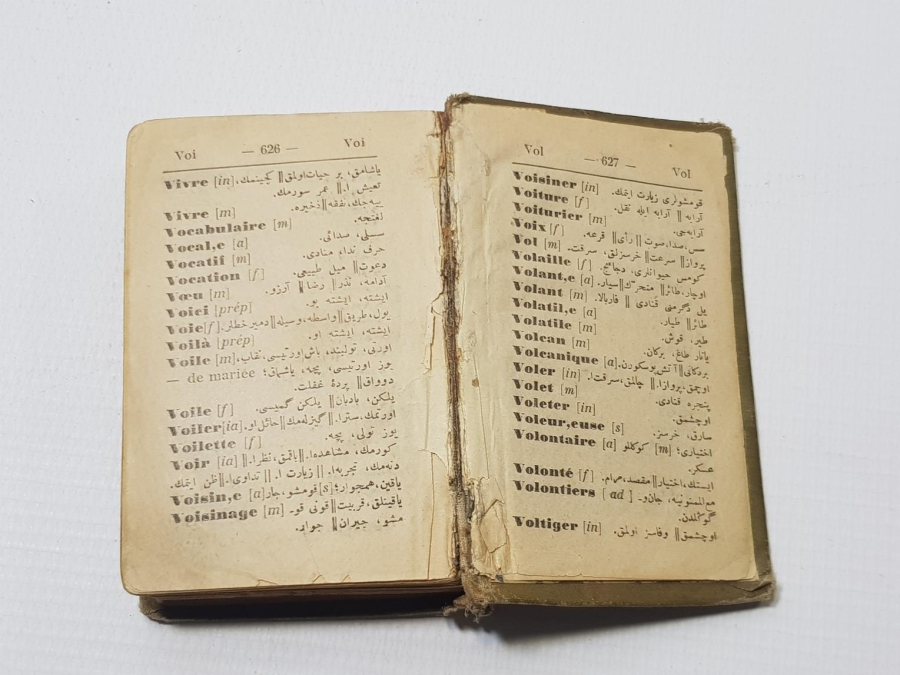 Voi — 626 — Voi
Vivre [in] یاشامق، بر حیات اولمق ‖ کچینمك،
تعیش ا. ‖ عمر سورمك.
Vivre [m] ییه‌جك، نفقه ‖ ذخیره.
Vocabulaire [m] لغتچه.
Vocal,e [a] سسلی، صدائی.
Vocatif [m] حرف ندا، منادی.
Vocation [f] دعوت ‖ میل طبیعی.
Vœu [m] آدامه، نذر ‖ رضا ‖ آرزو.
Voici [prép] ایشته، ایشته بو.
Voie [f] یول، طریق ‖ واسطه، وسیله ‖ دمیر خطلر.
Voilà [prép] ایشته، ایشته او.
Voile [m] اورتی، تولبند، باش اورتیسی، نقاب،
— de mariée ؛یوز اورتیسی، پچه، یاشماق
دوواق ‖ پردهٔ غفلت.
Voile [f] یلکن، بادبان ‖ یلکن گمیسی.
Voiler [ia] اورتمك، سترا. ‖ گیزله‌مك ‖ حائل او.
Voilette [f] یوز تولی، پچه.
Voir [ia] کورمك، مشاهده ا. ‖ باقمق، نظر ا. ‖
دنه‌مك، تجربه ا. ‖ زیارت ا. ‖ تداوی ا. ‖ ظن ایتمك.
Voisin,e [a] یاقین، همجوار؛ [s] قومشو، جار
Voisinage [m] یاقینلق، قربیت ‖ قونی قو-
مشو، جیران ‖ جوار.
Vol — 627 — Vol
Voisiner [in] قومشولری زیارت ایتمك.
Voiture [f] آرابه ‖ آرابه ایله نقل.
Voiturier [m] آرابه‌جی.
Voix [f] سس، صدا، صوت ‖ رأی ‖ قرعه.
Vol [m] پرواز ‖ سرعت ‖ خرسزلق، سرقت.
Volaille [f] کومس حیوانلری، دجاج.
Volant,e [a] اوچار، طائر ‖ متحرك ‖ سیار.
Volant [m] یل دگرمنی قنادی ‖ فاربالا.
Volatil,e [a] طائر ‖ طیار.
Volatile [m] طیر، قوش.
Volcan [m] یانار طاغ، برکان.
Volcanique [a] برکانی ‖ آتش پوسکورن.
Voler [in] اوچمق، پرواز ا. ‖ چالمق، سرقت ا.
Volet [m] پنجره قنادی.
Voleter [in] اوچشمق.
Voleur,euse [s] سارق، خرسز.
Volontaire [a] اختیاری؛ [m] کوکللو
عسکر.
Volonté [f] ایستك، اختیار ‖ مقصد، مرام.
Volontiers [ad] مع الممنونیه، جان و-
گوکلدن.
Voltiger [in] اوچشمق ‖ وفاسز اولمق.